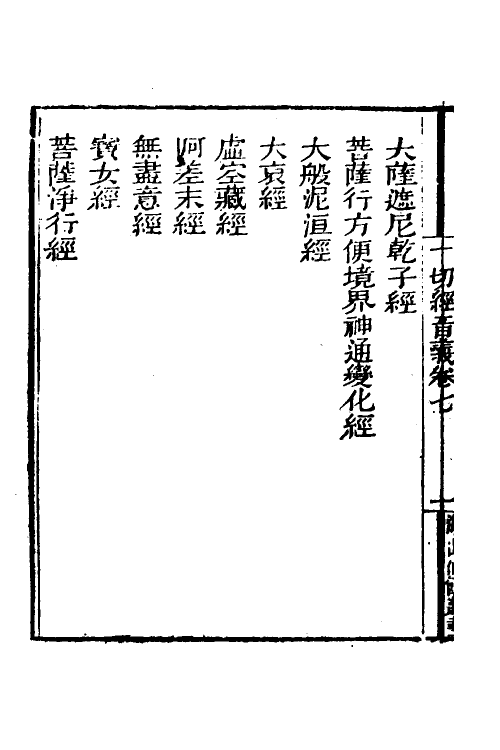 大薩遮尼乾子經
菩薩行方便境界神通變化經
大般泥洹經
大哀經
虛空藏經
阿差末經
無盡意經
寶女經
菩薩淨行經
一切經音義卷七
一
海山仙館叢書